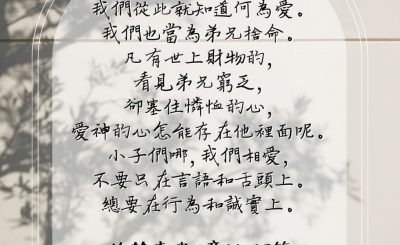 我們從此就知道何為愛。
我們也當為弟兄捨命。
凡有世上財物的，
看見弟兄窮乏，
卻塞住憐恤的心，
愛神的心怎能存在他裡面呢。
小子們哪，我們相愛，
不要只在言語和舌頭上。
總要在行為和誠實上。